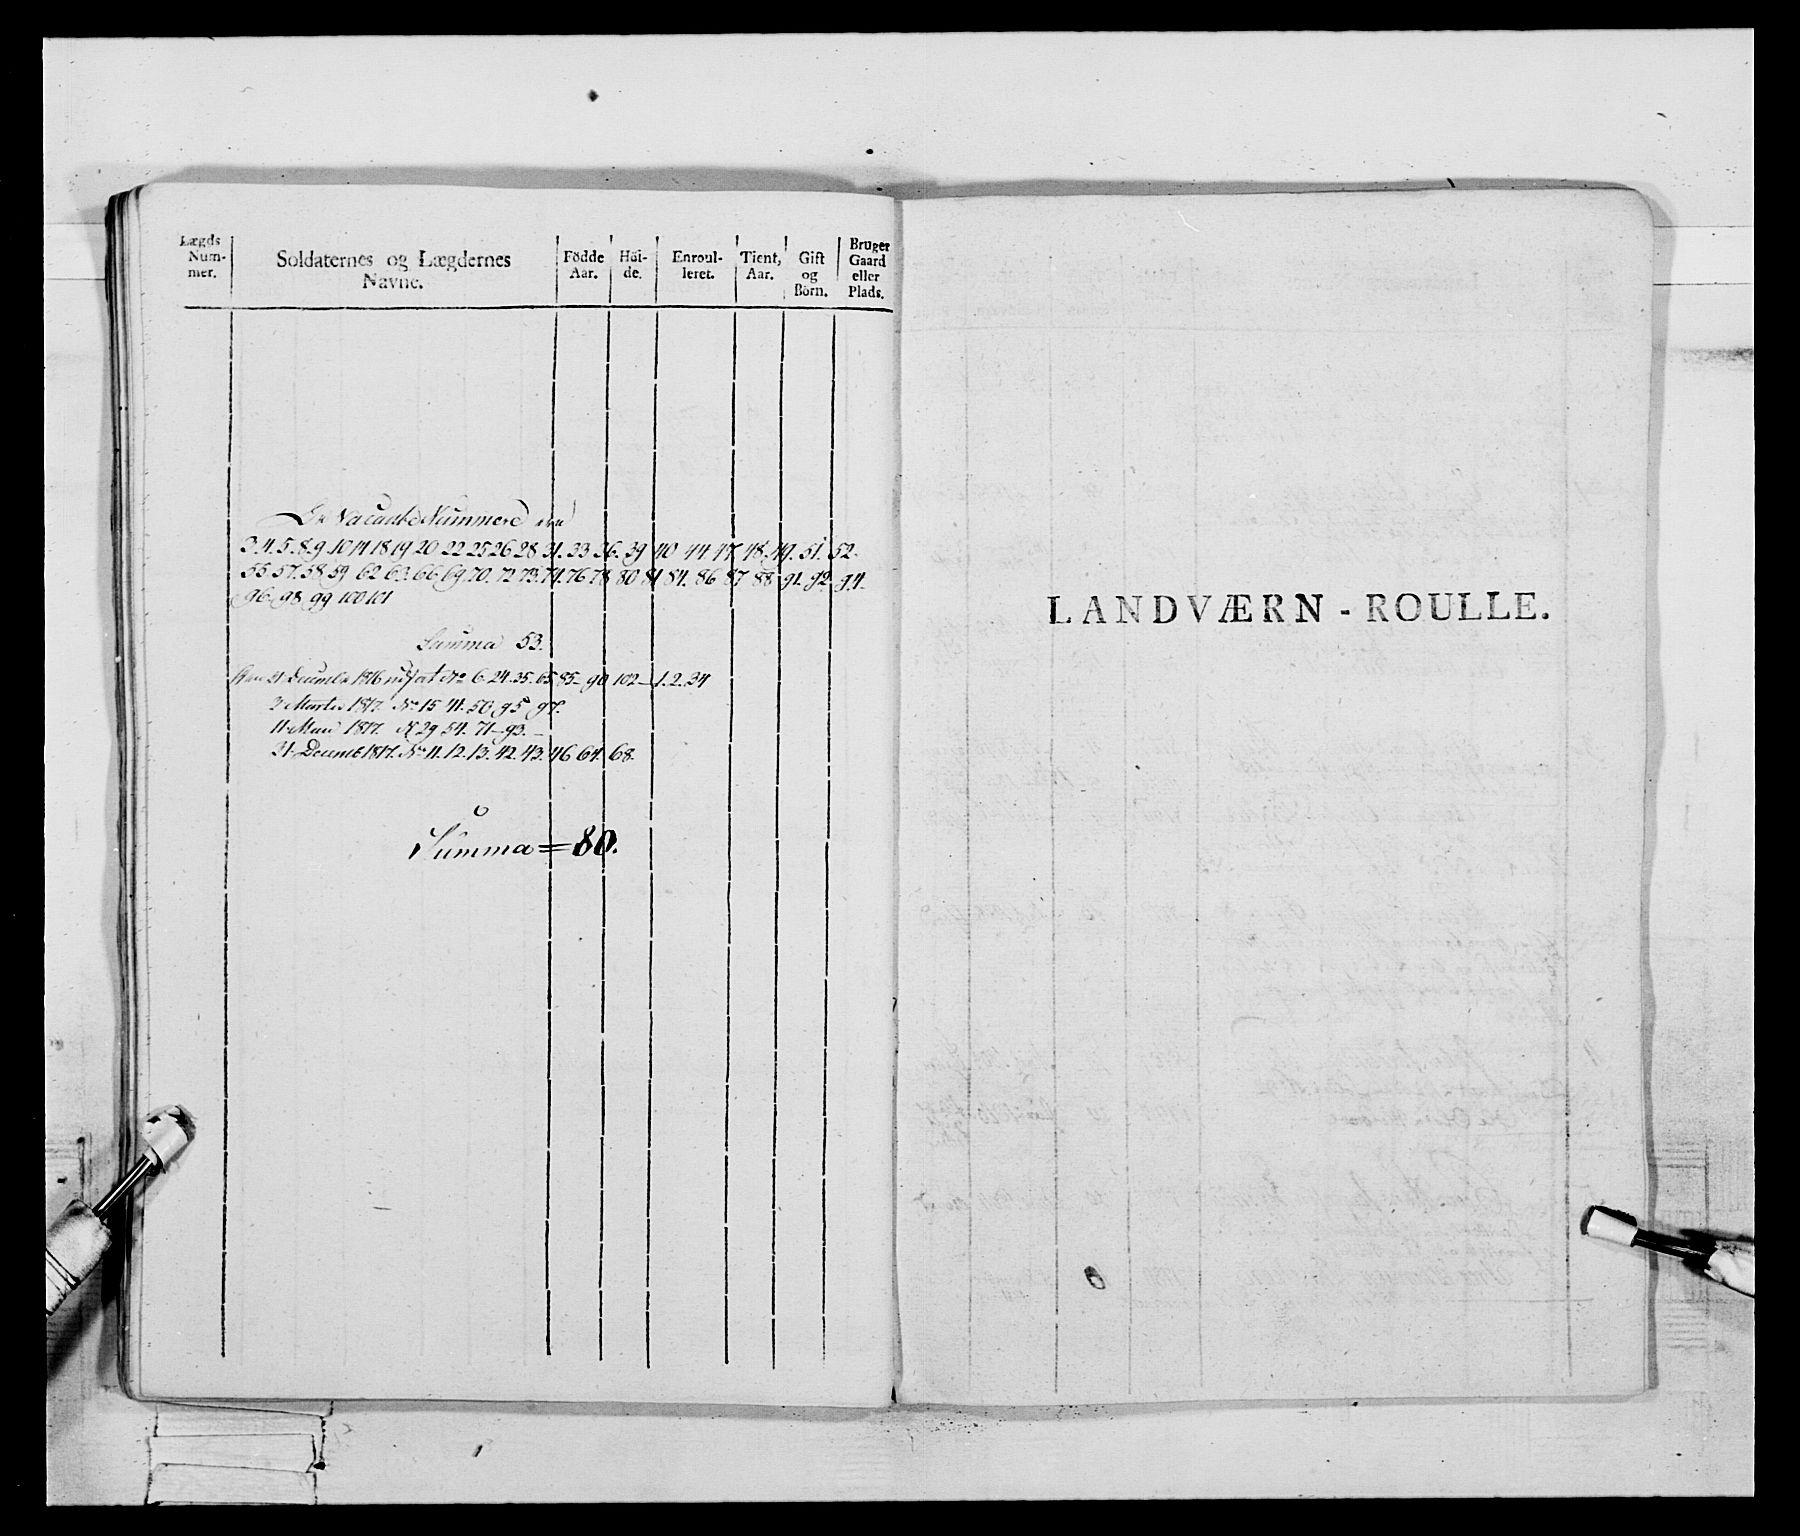 Lægds Num- mer.
Soldaternes og Lægdernes Navne.
Födde Aar.
Höi- de.
Enroul- leret.
Tient, Aar.
Gift og Börn.
Bruger Gaard eller Plads.
De Vacante Nummere ere
3. 4. 5. 8. 9. 10 14 18 19 20 22 25 26 28 31. 33 36. 39 40 44 47. 48. 49. 51. 52.
55. 57. 58. 59 62 63. 66. 69 70. 72 73. 74. 76 78 80 81 84. 86 87 88 91. 92. 94.
96. 98 99 100 101
Summa 53.
31 Decembr 1816 No 6. 24. 35. 65 85 - 90 102 - 1. 2. 34
2 Martii 1817. No 15 41. 50. 95 97.
11 1817. N 29 54. 71 - 93. -
31. Decemb 1817. No 11. 12. 13. 42. 43. 46 64. 68.
Summa = 80.
LANDVÆRN - ROULLE.